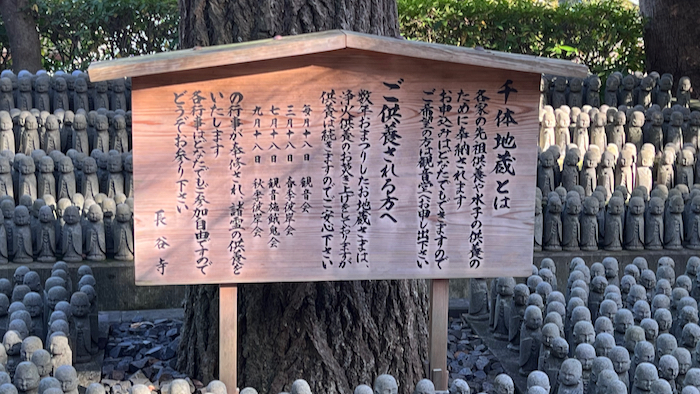 千体地蔵とは
各家の先祖供養や水子の供養の
ために奉納されます
お申込みはどなたでもできますので
ご希望の方は観音堂へお申し出下さい
ご供養される方へ
数年おまつりしたお地蔵さまは、
浄火供養のお焚き上げをしておりますが
供養は続きますのでご安心下さい
毎月十八日 観音会
三月十八日 春季彼岸会
七月十八日 観音施餓鬼会
九月十八日 秋季彼岸会
の行事が奉修され、諸霊の供養を
いたします
各行事はどなたでも参加自由ですので
どうぞお参り下さい
長谷寺